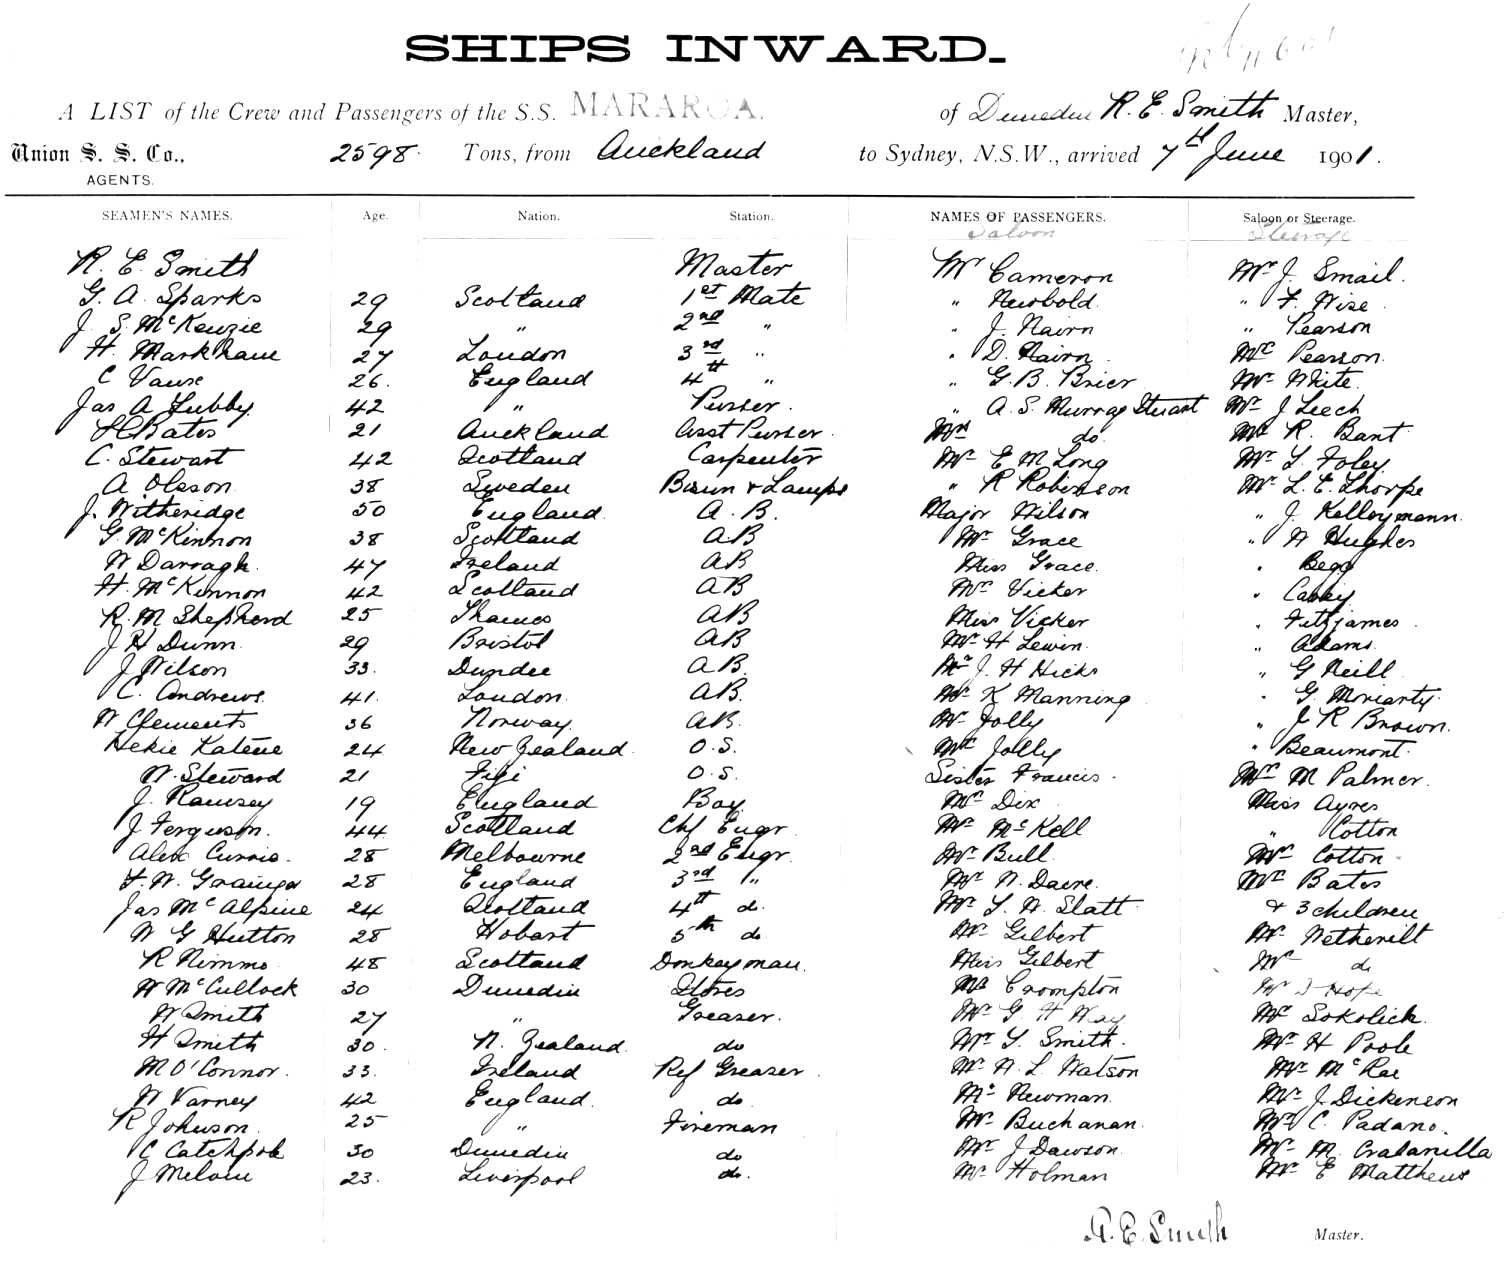 SHIPS INWARD.
A LIST of the Crew and Passengers of the S.S. MARAROA. of Dunedin R. E. Smith Master,
Union S. S. Co., 2598 Tons, from Auckland to Sydney, N.S.W., arrived 7th June 1901.
AGENTS.
SEAMEN'S NAMES. Age. Nation. Station. NAMES OF PASSENGERS. Saloon or Steerage.
Saloon Steerage
R. E. Smith Master Mr Cameron Mr J. Smail.
G. A. Sparks 29 Scotland 1st Mate " Newbold " F. Wise
J. S. McKenzie 29 " 2nd " " J. Nairn " Pearson
H. Markham 27 London 3rd " " D. Nairn Mrs Pearson.
C Vause 26. England 4th " " G. B. Brier Mr White.
Jas A Lubby 42 " Purser. " A. S. Murray Stuart Mr J Leech
H C Bates 21 Auckland Asst Purser Mrs do. Mr R. Bant
C. Stewart 42 Scotland Carpenter Mr E M Long Mr T. Foley
A Olsson 38 Sweden Bosun & Lamps " R Robinson Mr L. E. Thorpe
J. Witheridge 50 England. A. B. Major Wilson " J. Kelleymann.
G. McKinnon 38 Scotland AB Mr Grace " W Hughes
W Darragh. 47 Ireland AB Miss Grace. " Begg
H. McKinnon 42 Scotland AB Mrs Vicker " Casey
R. M Shepherd 25 Thames AB Miss Vicker " Fitzjames
J H Dunn 29 Bristol AB Mr H Lewin " Adams
J Wilson 33. Dundee AB. Mr J. H Hicks " G Neill
C. Andrews. 41. London. AB. Mr K Manning " G. Moriarty
W Clements 36 Norway. AB. Mr Jolly " J R Brown.
Hekie Katene 24 New Zealand. O.S. Mrs Jolly " Beaumont.
W. Steward 21 Fiji O.S. Sister Francis. Mrs M Palmer.
J. Ramsey 19 England Boy Mr Dix Miss Ayres
J Ferguson. 44 Scotland Chf Engr Mr McKell " Cotton
Alex Currie. 28 Melbourne 2nd Engr. Mr Bull Mr Cotton
F. W. Grainger 28 England 3rd " Mr W. Dacre. Mrs Bates
Jas McAlpine 24 Scotland 4th do. Mr T. W. Slatt & 3 children
W G Hutton 28 Hobart 5th do Mr Gilbert Mr Netherilt
R Nimmo 48 Scotland Donkeyman. Miss Gilbert Mrs do
W McCullock 30 Dunedin Stores Mr Crompton Mr J Hope
W Smith 27 " Greaser. Mr G H Way Mr Sokolick.
H Smith 30. N. Zealand. do Mr T. Smith. Mr H Poole
M O'Connor. 33. Ireland Ref Greaser Mr W. L. Watson Mr McRae
W Varney 42 England. do. Mr Newman. Mr J. Dickenson
R Johnson. 25 " Fireman Mr Buchanan. Mr C. Padano.
C Catchpole 30 Dunedin do Mr J Dawson. Mr M.
J Melvin 23. Liverpool do. Mr Holman Mr E Matthews
R. E. Smith Master.